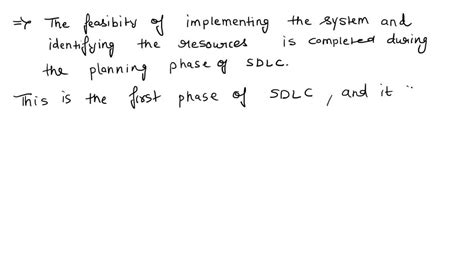 => The feasibity of implementing the system and
identifying the resources is completed during
the planning phase of SDLC.
This is the first phase of SDLC, and it